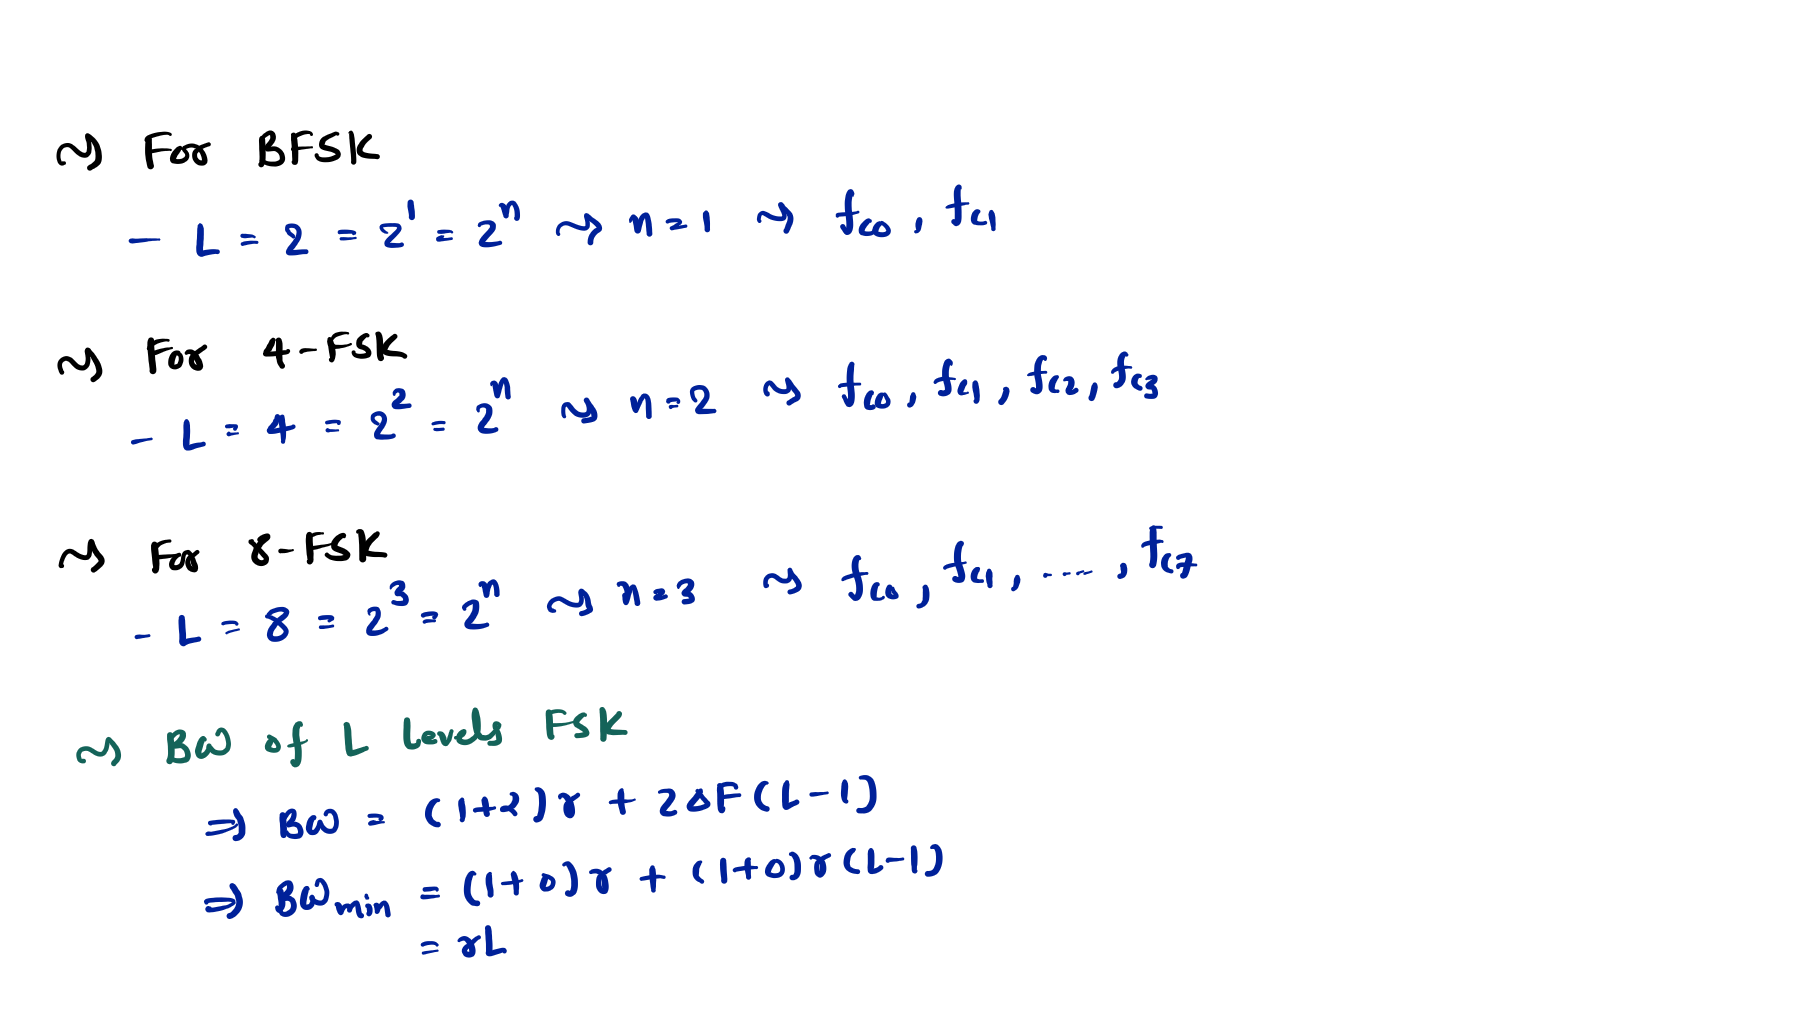 ~> For BFSK
- L = 2 = 2^1 = 2^n ~> n = 1 ~> fc0 , fc1
~> For 4-FSK
- L = 4 = 2^2 = 2^n ~> n = 2 ~> fc0 , fc1 , fc2 , fc3
~> For 8-FSK
- L = 8 = 2^3 = 2^n ~> n = 3 ~> fc0 , fc1 , .... , fc7
~> BW of L levels FSK
⇒ BW = (1+2)r + 2ΔF(L-1)
⇒ BWmin = (1+0)r + (1+0)r(L-1)
= rL